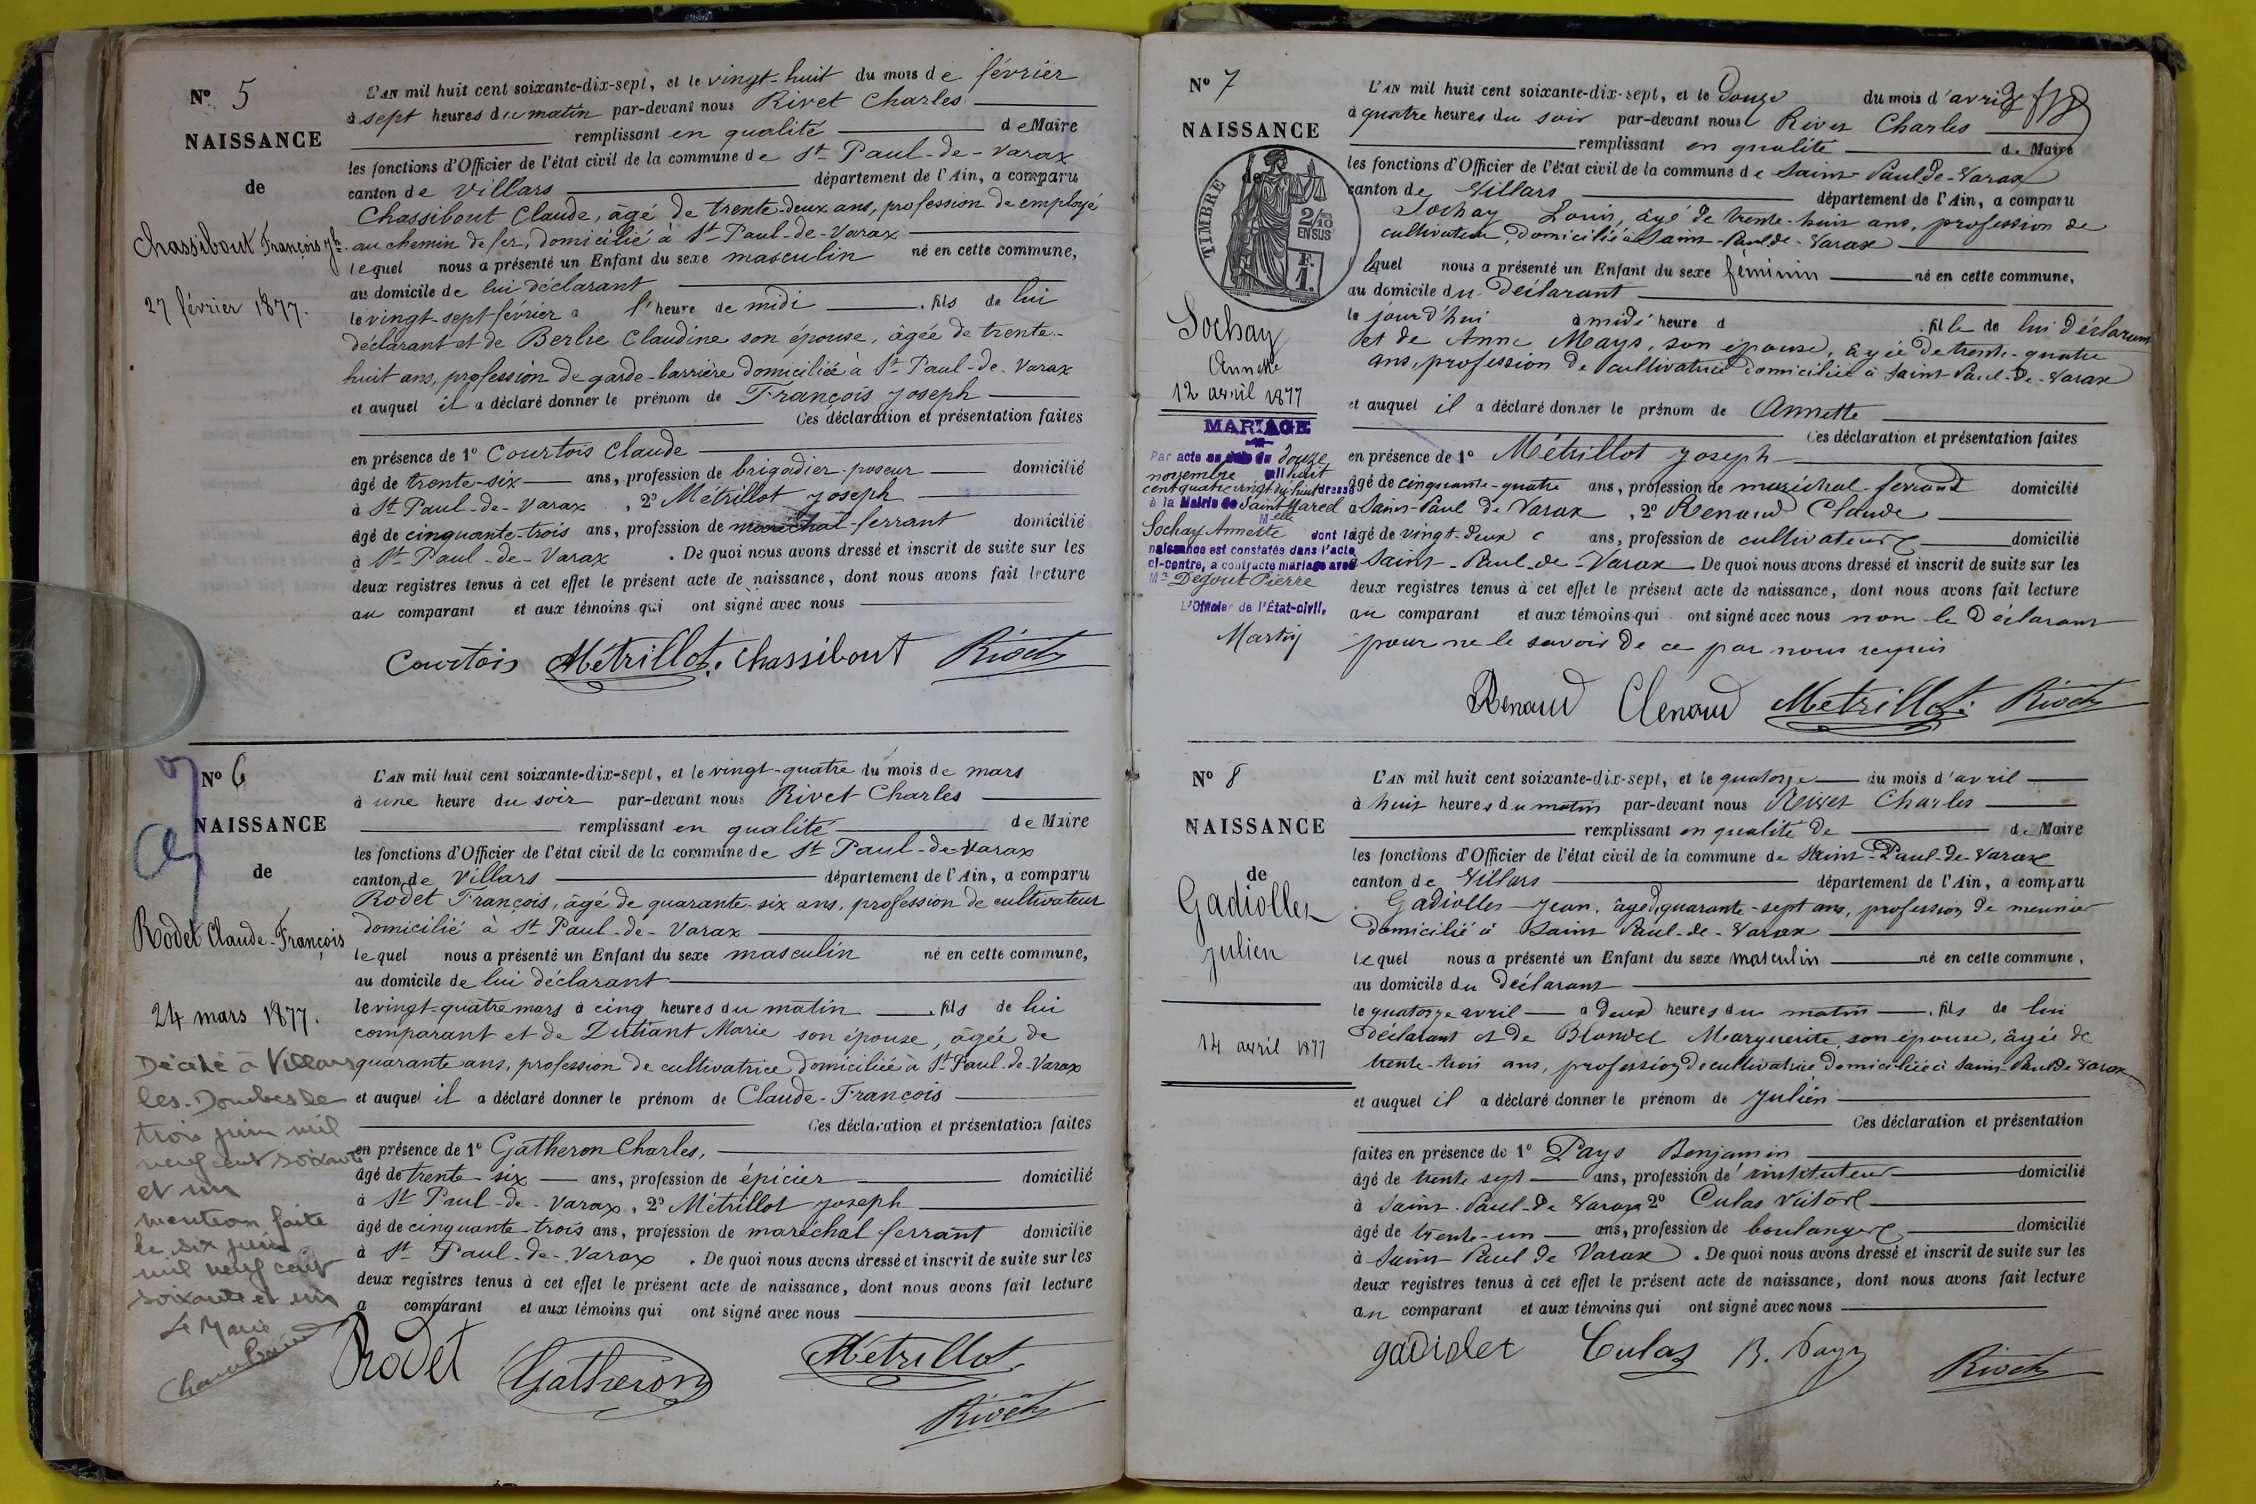 N° 5
NAISSANCE
de
Chassibout François Jh.
27 février 1877.
L'AN mil huit cent soixante-dix-sept, et le vingt-huit du mois de février
à sept heures du matin par-devant nous Rivet Charles
remplissant en qualité de Maire
les fonctions d'Officier de l'état civil de la commune de St Paul-de-Varax
canton de Villars département de l'Ain, a comparu
Chassibout Claude, âgé de trente-deux ans, profession de employé
au chemin de fer, domicilié à St-Paul-de-Varax
lequel nous a présenté un Enfant du sexe masculin né en cette commune,
au domicile de lui déclarant
le vingt-sept février à l'heure de midi, fils de lui
déclarant et de Berlie Claudine son épouse, âgée de trente-
huit ans, profession de garde-barrière domiciliée à St-Paul-de-Varax
et auquel il a déclaré donner le prénom de François Joseph
Ces déclaration et présentation faites
en présence de 1° Courtois Claude
âgé de trente-six ans, profession de brigadier-poseur domicilié
à St Paul-de-Varax, 2° Métrillot Joseph
âgé de cinquante-trois ans, profession de maréchal-ferrant domicilié
à St-Paul-de-Varax. De quoi nous avons dressé et inscrit de suite sur les
deux registres tenus à cet effet le présent acte de naissance, dont nous avons fait lecture
au comparant et aux témoins qui ont signé avec nous
Courtois Métrillot. Chassibout Rivet
N° 6
NAISSANCE
de
Rodet Claude-François
24 mars 1877.
Décédé à Villars
les-Dombes le
trois juin mil
neuf cent soixante
et un
mention faite
le six juin
mil neuf cent
soixante et un
Le Maire
L'AN mil huit cent soixante-dix-sept, et le vingt-quatre du mois de mars
à une heure du soir par-devant nous Rivet Charles
remplissant en qualité de Maire
les fonctions d'Officier de l'état civil de la commune de St Paul-de-Varax
canton de Villars département de l'Ain, a comparu
Rodet François, âgé de quarante-six ans, profession de cultivateur
domicilié à St Paul-de-Varax
lequel nous a présenté un Enfant du sexe masculin né en cette commune,
au domicile de lui déclarant
le vingt-quatre mars à cinq heures du matin, fils de lui
comparant et de Marie son épouse, âgée de
quarante ans, profession de cultivatrice domiciliée à St Paul-de-Varax
et auquel il a déclaré donner le prénom de Claude-François
Ces déclaration et présentation faites
en présence de 1° Gatheron Charles,
âgé de trente six ans, profession de épicier domicilié
à St Paul-de-Varax, 2° Métrillot Joseph
âgé de cinquante-trois ans, profession de maréchal ferrant domicilié
à St Paul-de-Varax. De quoi nous avons dressé et inscrit de suite sur les
deux registres tenus à cet effet le présent acte de naissance, dont nous avons fait lecture
a comparant et aux témoins qui ont signé avec nous
Rodet Gatheron Métrillot
Rivet
N° 7
NAISSANCE
de
TIMBRE
2/10 EN SUS
F. 1.
Sochay
Annette
12 avril 1877
MARIAGE
Par acte du douze
novembre mil huit
cent quatre vingt dix huit dressé
à la Mairie de Saint Marcel
Melle
Sochay Annette dont la
naissance est constatée dans l'acte
ci-contre, a contracté mariage avec
Mr Degout Pierre
L'Officier de l'État-civil,
Martin
L'AN mil huit cent soixante-dix-sept, et le Douze du mois d'avril
à quatre heures du soir par-devant nous Rivet Charles
remplissant en qualité de Maire
les fonctions d'Officier de l'état civil de la commune de Saint Paul de-Varax
canton de Villars département de l'Ain, a comparu
Sochay Louis, âgé de trente-huit ans, profession de
cultivateur, domicilié à Saint-Paul de-Varax
lequel nous a présenté un Enfant du sexe féminin né en cette commune,
au domicile du Déclarant
le jourd'hui à midi heure d fille de lui déclarant
et de Anne Mays, son épouse, âgée de trente-quatre
ans, profession de cultivatrice domiciliée à Saint Paul-de-Varax
et auquel il a déclaré donner le prénom de Annette
Ces déclaration et présentation faites
en présence de 1° Métrillot Joseph
âgé de cinquante-quatre ans, profession de maréchal-ferrand domicilié
à Saint-Paul de Varax, 2° Renaud Claude
âgé de vingt-deux ans, profession de cultivateur domicilié
à Saint-Paul-de-Varax De quoi nous avons dressé et inscrit de suite sur les
deux registres tenus à cet effet le présent acte de naissance, dont nous avons fait lecture
au comparant et aux témoins qui ont signé avec nous non le Déclarant
pour ne le savoir de ce par nous requis
Renaud Métrillot. Rivet
N° 8
NAISSANCE
de
Gadiollet
Julien
14 avril 1877
L'AN mil huit cent soixante-dix-sept, et le quatorze du mois d'avril
à huit heures du matin par-devant nous Rivet Charles
remplissant en qualité de de Maire
les fonctions d'Officier de l'état civil de la commune de Saint-Paul-de-Varax
canton de Villars département de l'Ain, a comparu
Gadiollet Jean, âgé de quarante-sept ans, profession de meunier
domicilié à Saint Paul-de-Varax
lequel nous a présenté un Enfant du sexe masculin né en cette commune,
au domicile du Déclarant
le quatorze avril à Deux heures du matin, fils de lui
Déclarant et de Blondel Marguerite, son épouse, âgée de
trente-trois ans, profession de cultivatrice domiciliée à Saint-Paul de Varax
et auquel il a déclaré donner le prénom de Julien
Ces déclaration et présentation
faites en présence de 1° Pays Benjamin
âgé de trente sept ans, profession de instituteur domicilié
à Saint-Paul-de Varax 2° Culas Victor
âgé de trente-un ans, profession de boulanger domicilié
à Saint Paul de Varax. De quoi nous avons dressé et inscrit de suite sur les
deux registres tenus à cet effet le présent acte de naissance, dont nous avons fait lecture
au comparant et aux témoins qui ont signé avec nous
gadiolet Culas B. Pays Rivet